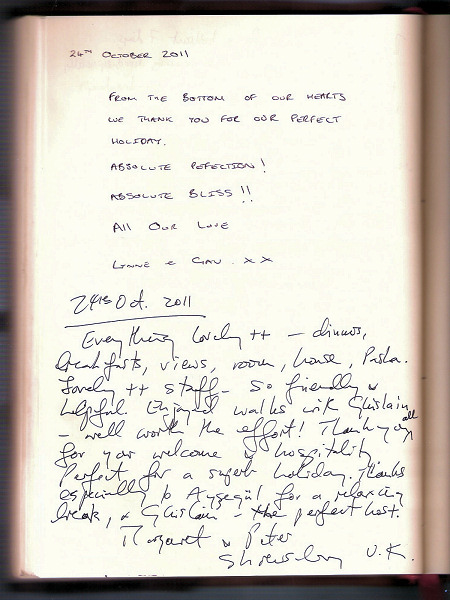 24TH OCTOBER 2011
FROM THE BOTTOM OF OUR HEARTS
WE THANK YOU FOR OUR PERFECT
HOLIDAY.
ABSOLUTE PEFECTION!
ABSOLUTE BLISS!!
All OUR LOVE
LYNNE & GAV. X X
24th Oct. 2011
Everything lovely ++ – dinners,
breakfasts, views, room, house, Pasha.
Lovely ++ staff – so friendly &
helpful. Enjoyed walks with Ghislain
– well worth the effort! Thank you all
for your welcome & hospitality
Perfect for a superb holiday. Thanks
especially to Ayşegül for a relaxing
break, & Ghislain – the perfect host.
Margaret & Peter
Shrewsbury U.K.